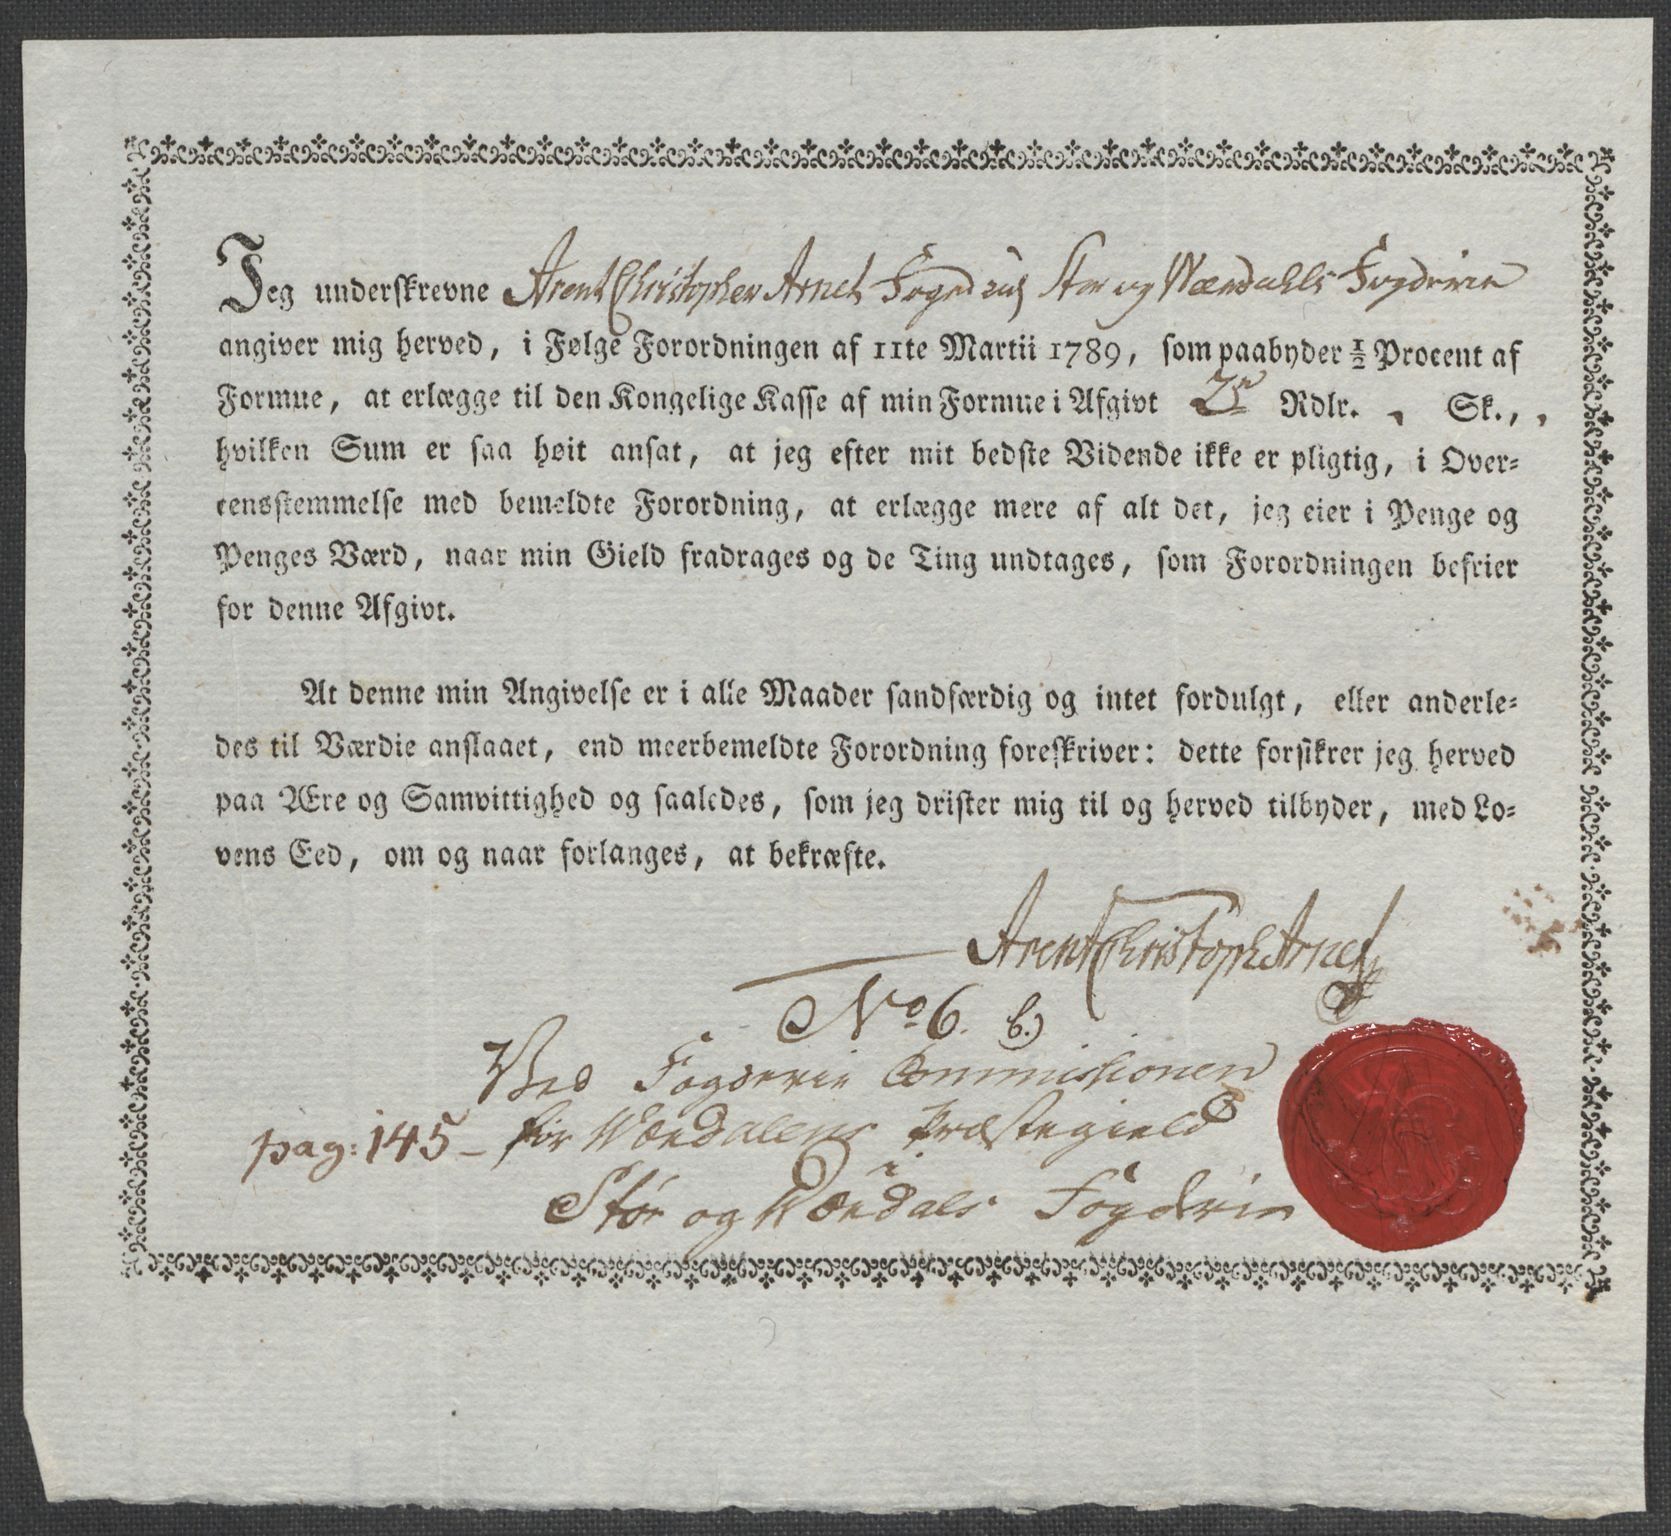 Jeg underskrevne Arent Christopher Arnet Foged Stør og Wærdahls Fogderie
angiver mig herved, i Følge Forordningen af 11te Martii 1789, som paabyder ½ Procent af
Formue, at erlægge til den Kongelige Kasse af min Formue i Afgivt Rdlr. Sk.,
hvilken Sum er saa høit ansat, at jeg efter mit bedste Vidende ikke er pligtig, i Over=
eensstemmelse med bemeldte Forordning, at erlægge mere af alt det, jeg eier i Penge og
Penges Værd, naar min Gield fradrages og de Ting undtages, som Forordningen befrier
for denne Afgivt.
At denne min Angivelse er i alle Maader sandfærdig og intet fordulgt, eller anderle=
des til Værdie anslaaet, end meerbemeldte Forordning foreskriver: dette forsikrer jeg herved
paa Ære og Samvittighed og saaledes, som jeg drister mig til og herved tilbyder, med Lo=
vens Eed, om og naar forlanges, at bekræfte.
Arent Christoph Arnet
No 6. b.)
Ved Fogderie Commissionen
pag: 145 – for Wærdalens Præstegield
i
Stør og Wærdals Fogderie